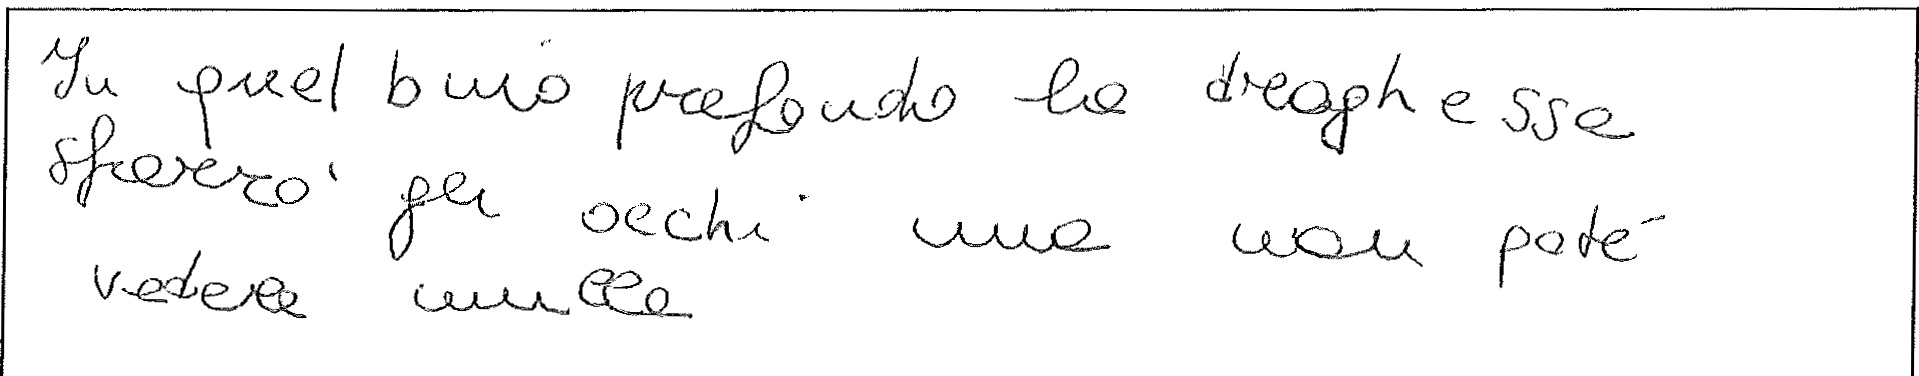 In quel buio profondo la draghessa
sbarrò gli occhi ma non poté
vedere nulla